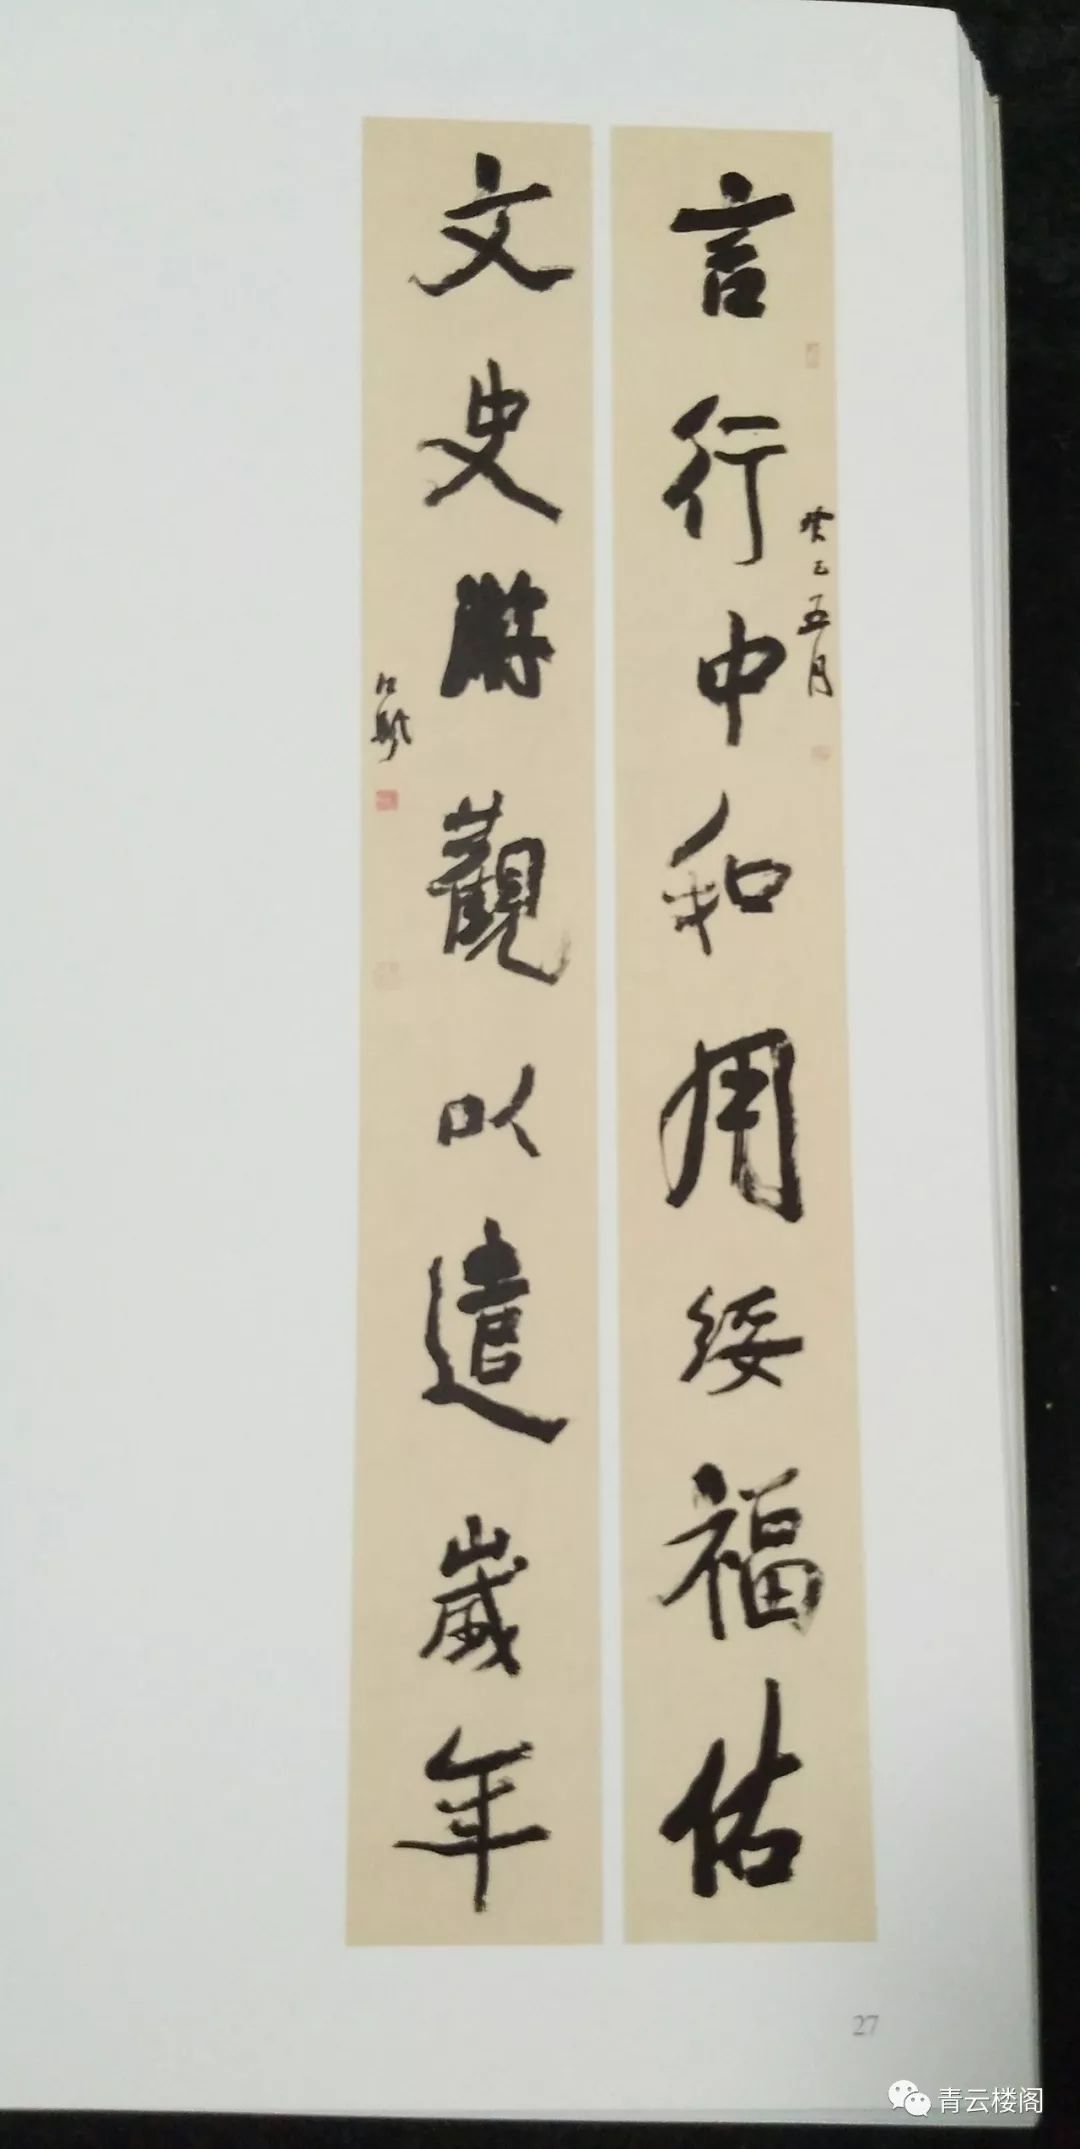 言行中和用綏福佑
癸巳五月
文史游觀以遣歲年
27
青云楼阁